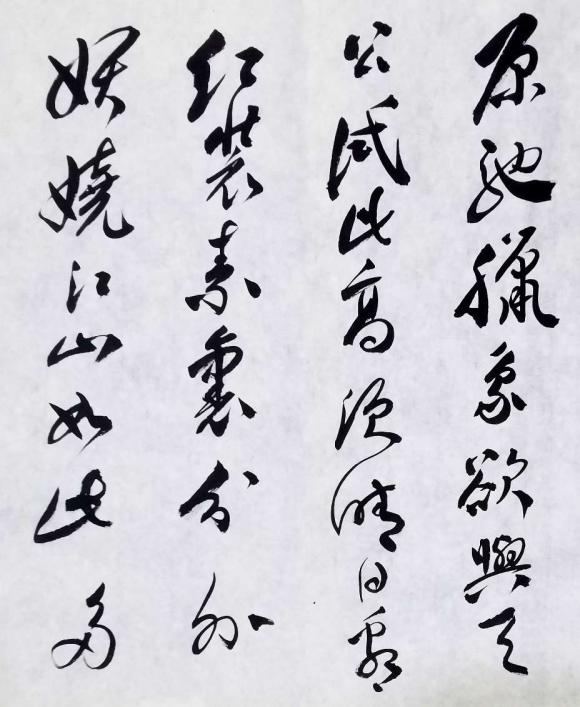 原馳臘象欲與天
公試比高須晴日看
红裝素裹分外
妖嬈江山如此多